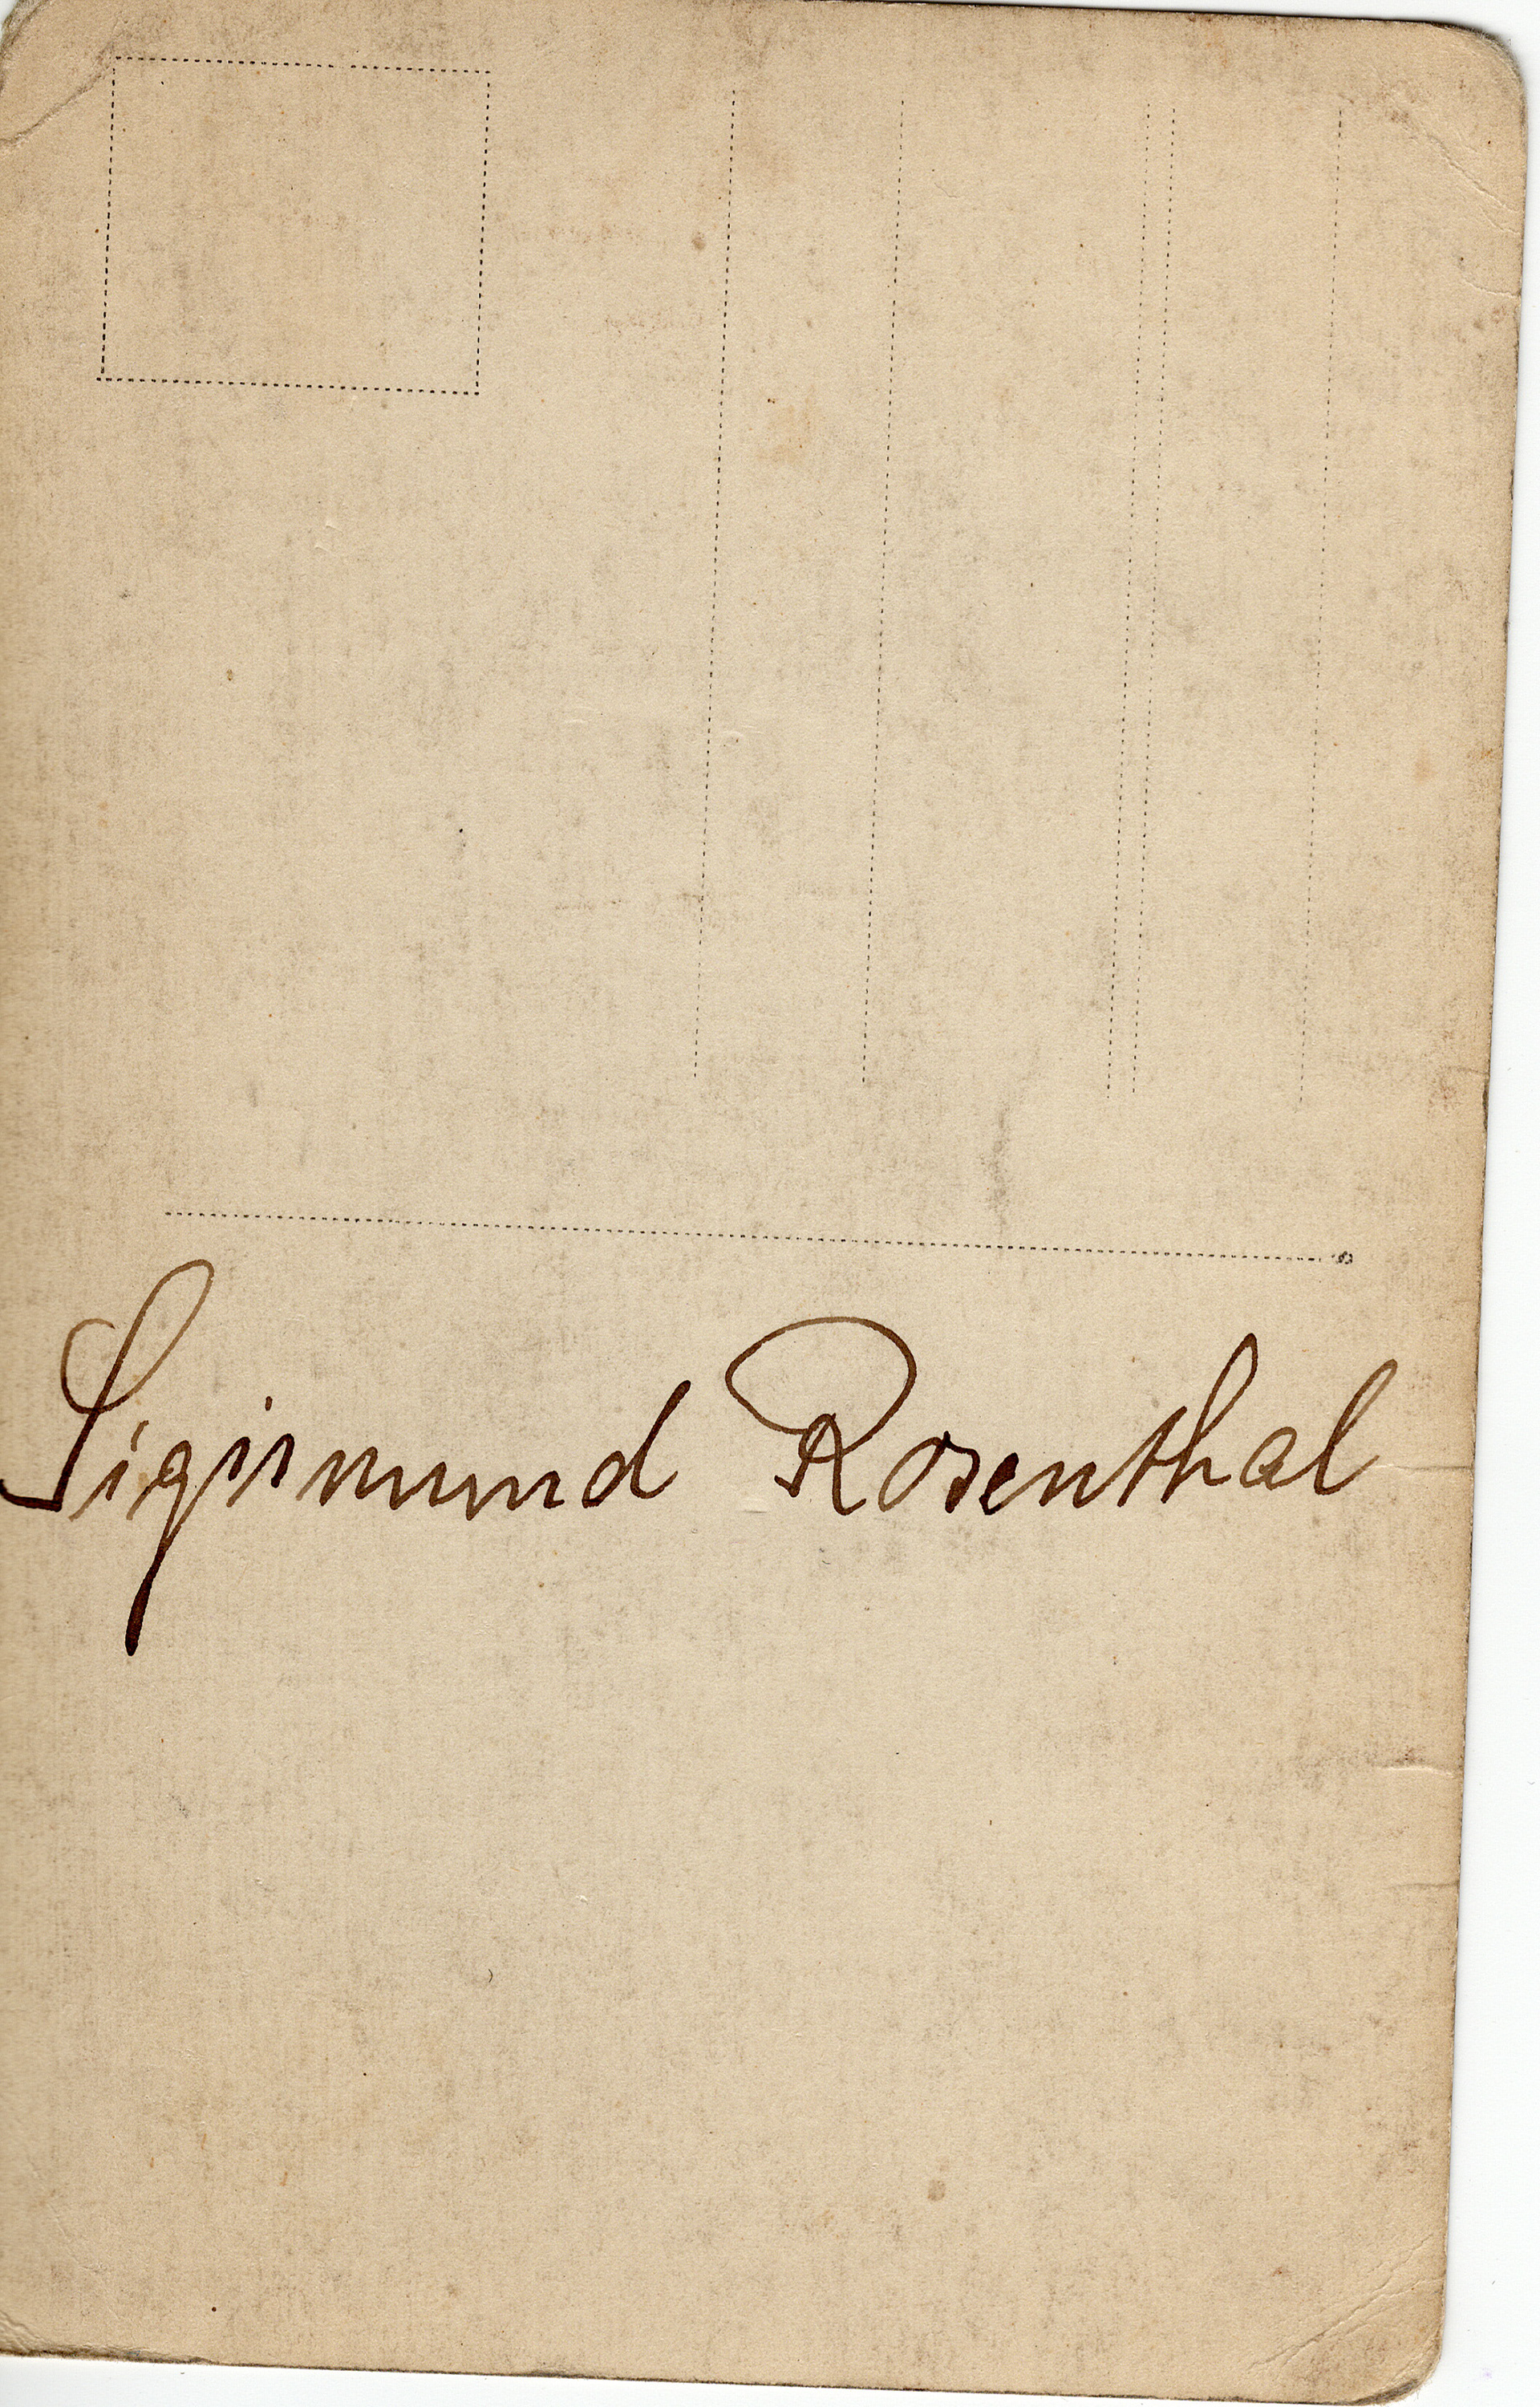 Sigismund Rosenthal